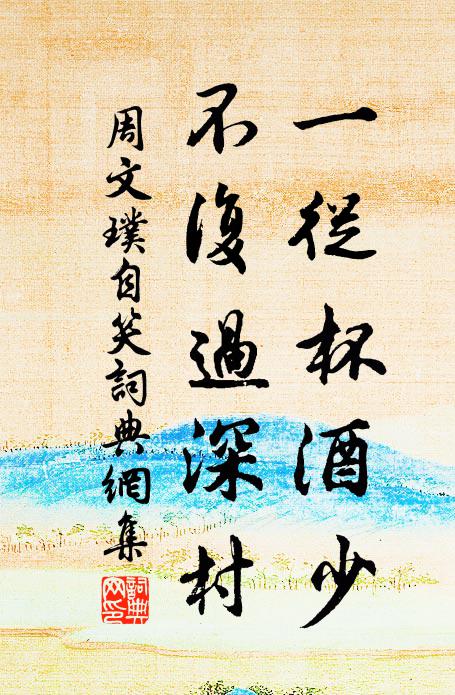 一從杯酒少
不復過深村
周文璞自笑詞典網集
詞典網印